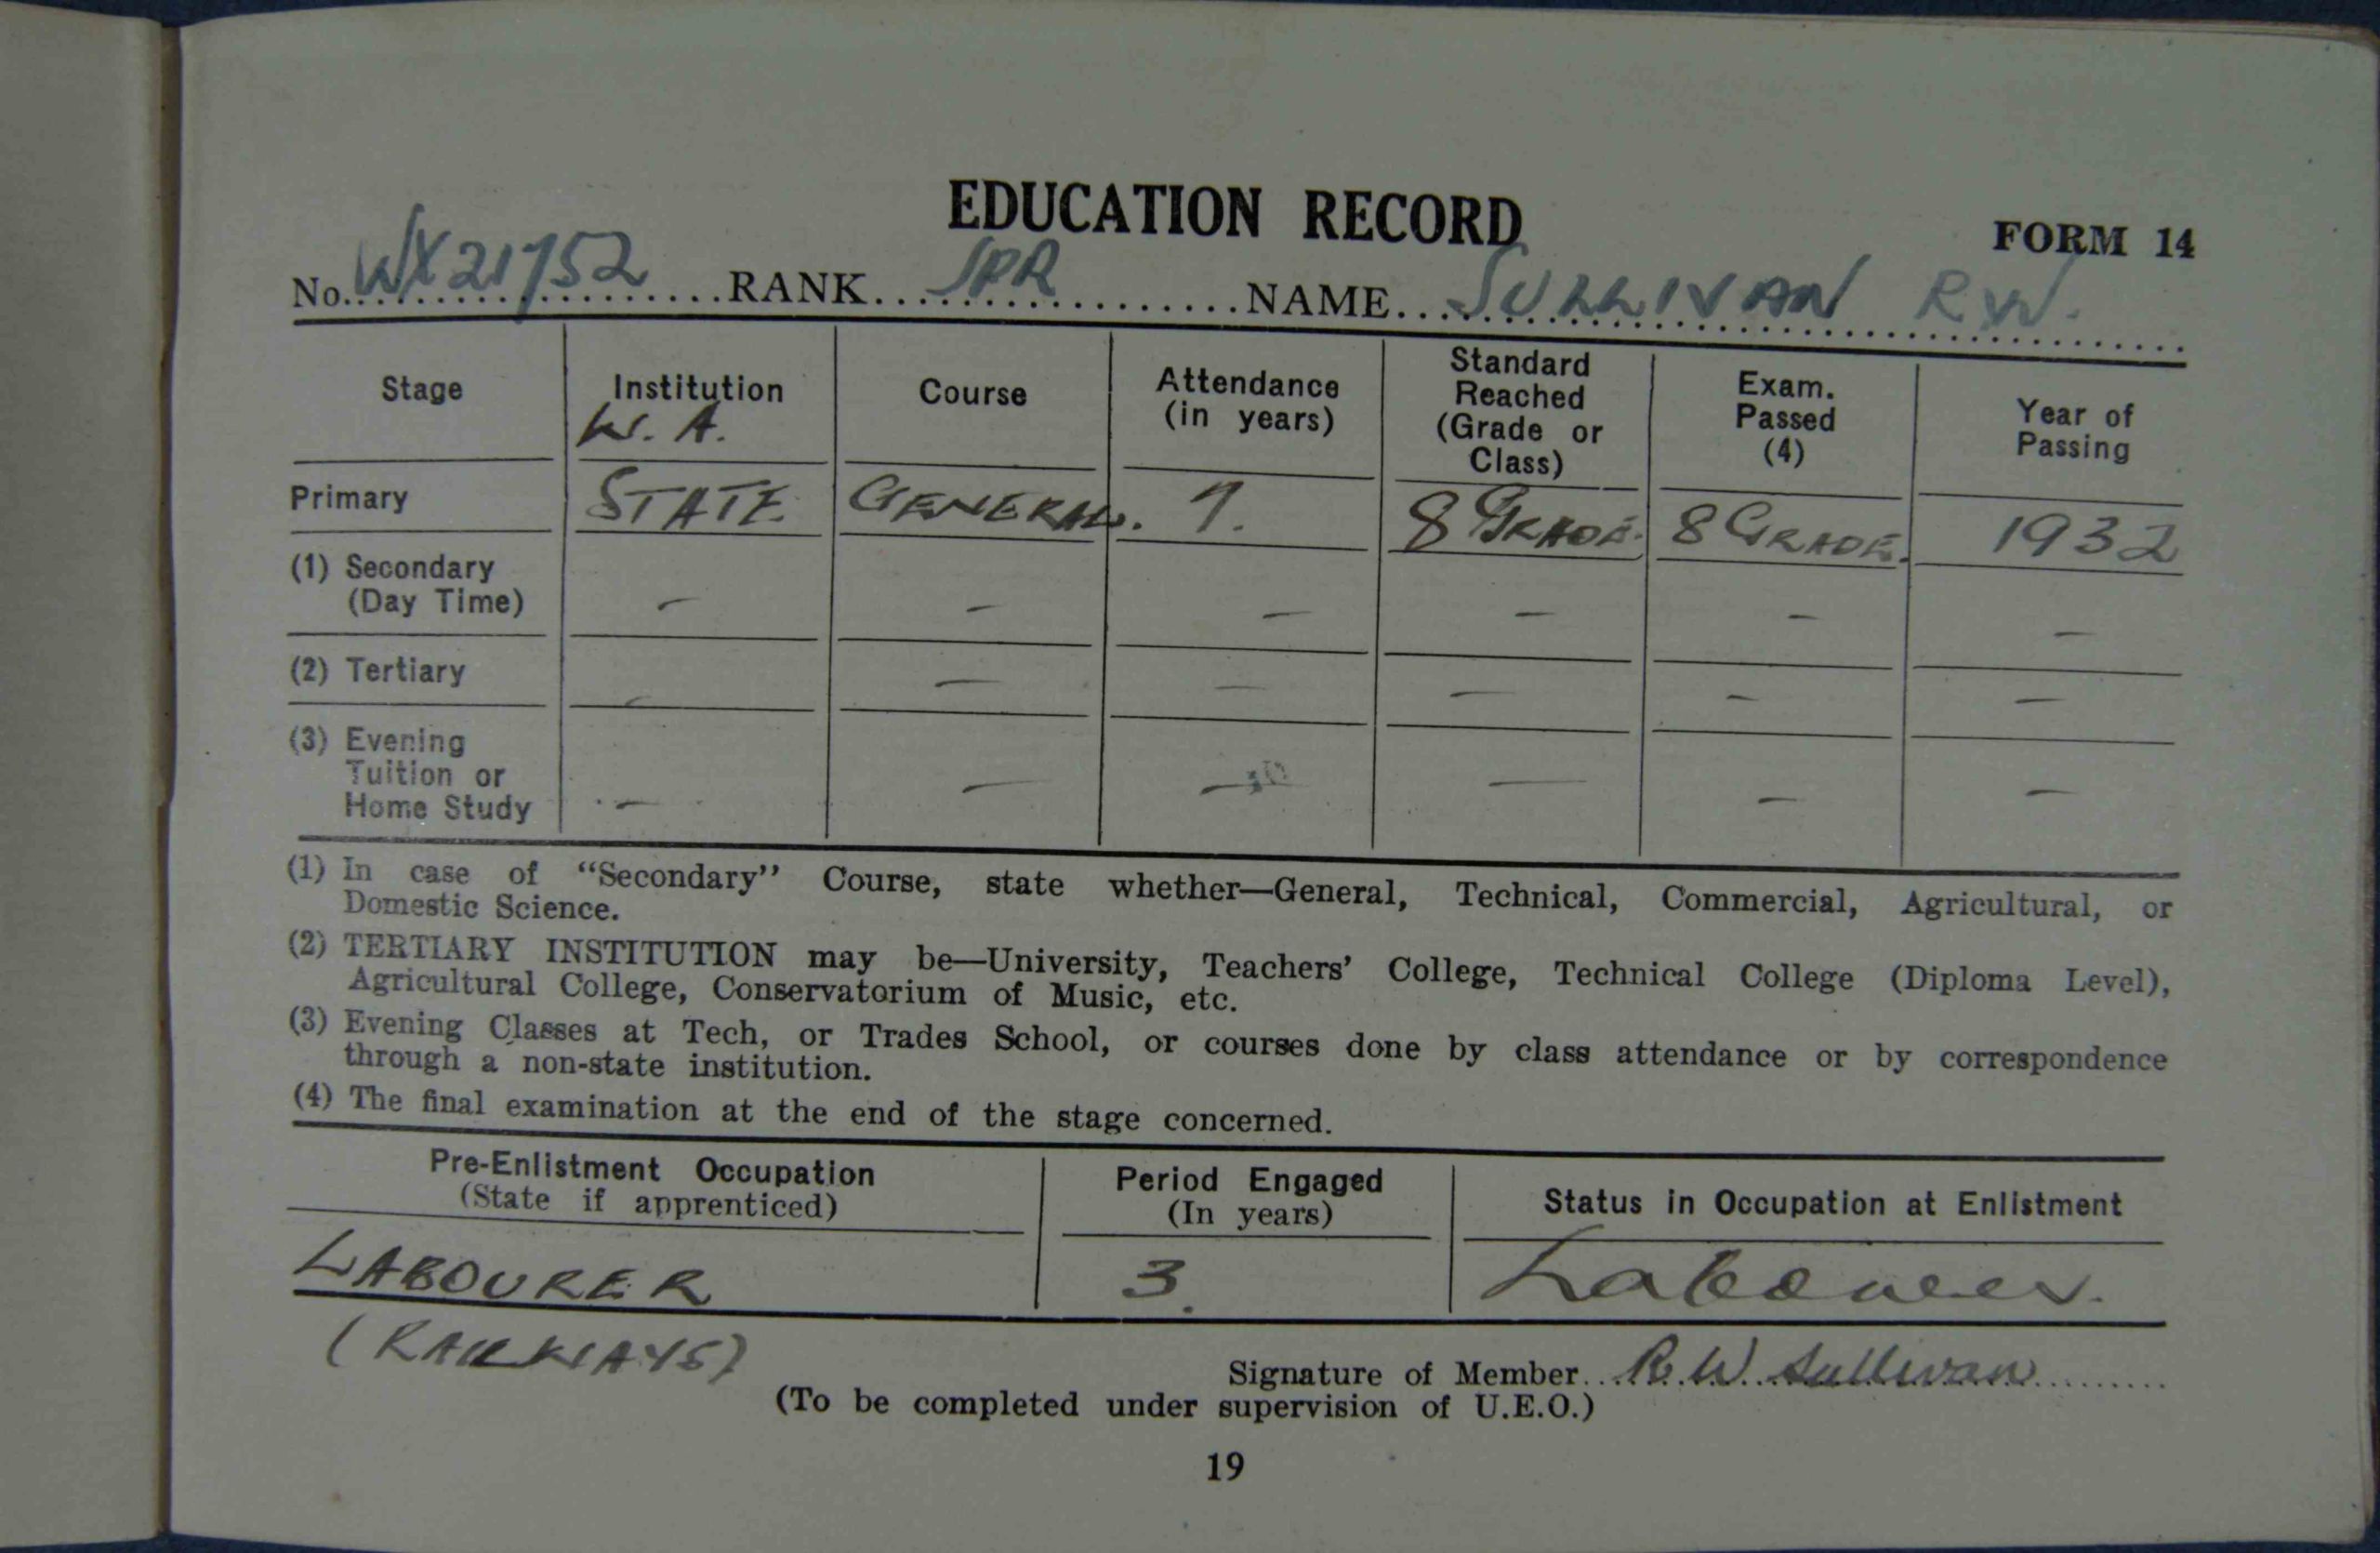 EDUCATION RECORD
FORM 14
No. WX21752 RANK SPR NAME SULLIVAN R.W.
Stage Institution Course Attendance (in years) Standard Reached (Grade or Class) Exam. Passed (4) Year of Passing
W. A.
Primary STATE GENERAL. 7. 8 GRADE. 8 GRADE. 1932
(1) Secondary (Day Time) – – – – – –
(2) Tertiary – – – – – –
(3) Evening Tuition or Home Study – – – – – –
(1) In case of “Secondary” Course, state whether—General, Technical, Commercial, Agricultural, or
Domestic Science.
(2) TERTIARY INSTITUTION may be—University, Teachers’ College, Technical College (Diploma Level),
Agricultural College, Conservatorium of Music, etc.
(3) Evening Classes at Tech, or Trades School, or courses done by class attendance or by correspondence
through a non-state institution.
(4) The final examination at the end of the stage concerned.
Pre-Enlistment Occupation (State if apprenticed) Period Engaged (In years) Status in Occupation at Enlistment
LABOURER 3. Labourer.
(RAILWAYS)
Signature of Member R. W. Sullivan
(To be completed under supervision of U.E.O.)
19